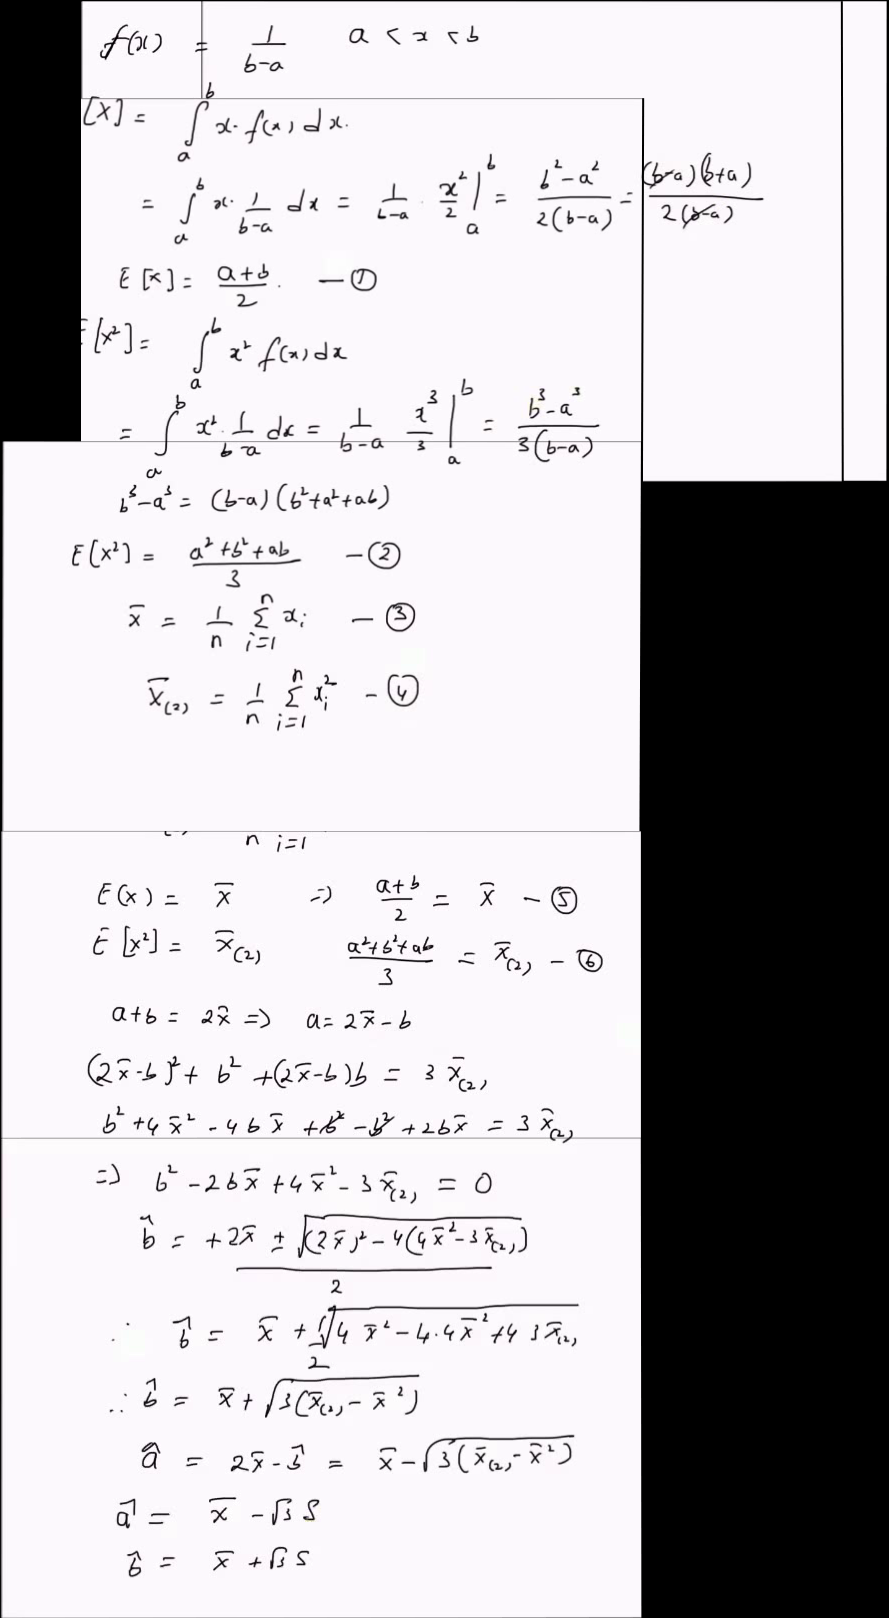 f(x) = 1/(b-a)   a < x < b
[X] = ∫_a^b x. f(x) dx.
= ∫_a^b x. 1/(b-a) dx = 1/(b-a) . x²/2 |_a^b = (b²-a²)/(2(b-a)) = ((b-a)(b+a))/(2(b-a))
E[X] = (a+b)/2 . — ①
E[X²] = ∫_a^b x² f(x) dx
= ∫_a^b x². 1/(b-a) dx = 1/(b-a) x³/3 |_a^b = (b³-a³)/(3(b-a))
b³-a³ = (b-a)(b²+a²+ab)
E[X²] = (a²+b²+ab)/3 — ②
x̄ = 1/n Σ_{i=1}^n x_i — ③
x̄_(2) = 1/n Σ_{i=1}^n x_i² - ④
n i=1
E(x) = x̄ => (a+b)/2 = x̄ - ⑤
E[x²] = x̄_(2)   (a²+b²+ab)/3 = x̄_(2) - ⑥
a+b = 2x̄ => a = 2x̄-b
(2x̄-b)² + b² + (2x̄-b)b = 3x̄_(2)
b²+4x̄² - 4bx̄ + b² - b² + 2bx̄ = 3x̄_(2)
=> b² - 2bx̄ + 4x̄² - 3x̄_(2) = 0
b̂ = (+2x̄ ± √((2x̄)² - 4(4x̄²-3x̄_(2))))/2
∴ b̂ = x̄ + 1/2 √(4x̄² - 4.4x̄² + 4 3x̄_(2))
∴ b̂ = x̄ + √(3(x̄_(2) - x̄²))
â = 2x̄ - b̂ = x̄ - √(3(x̄_(2) - x̄²))
â = x̄ - √3 S
b̂ = x̄ + √3 S